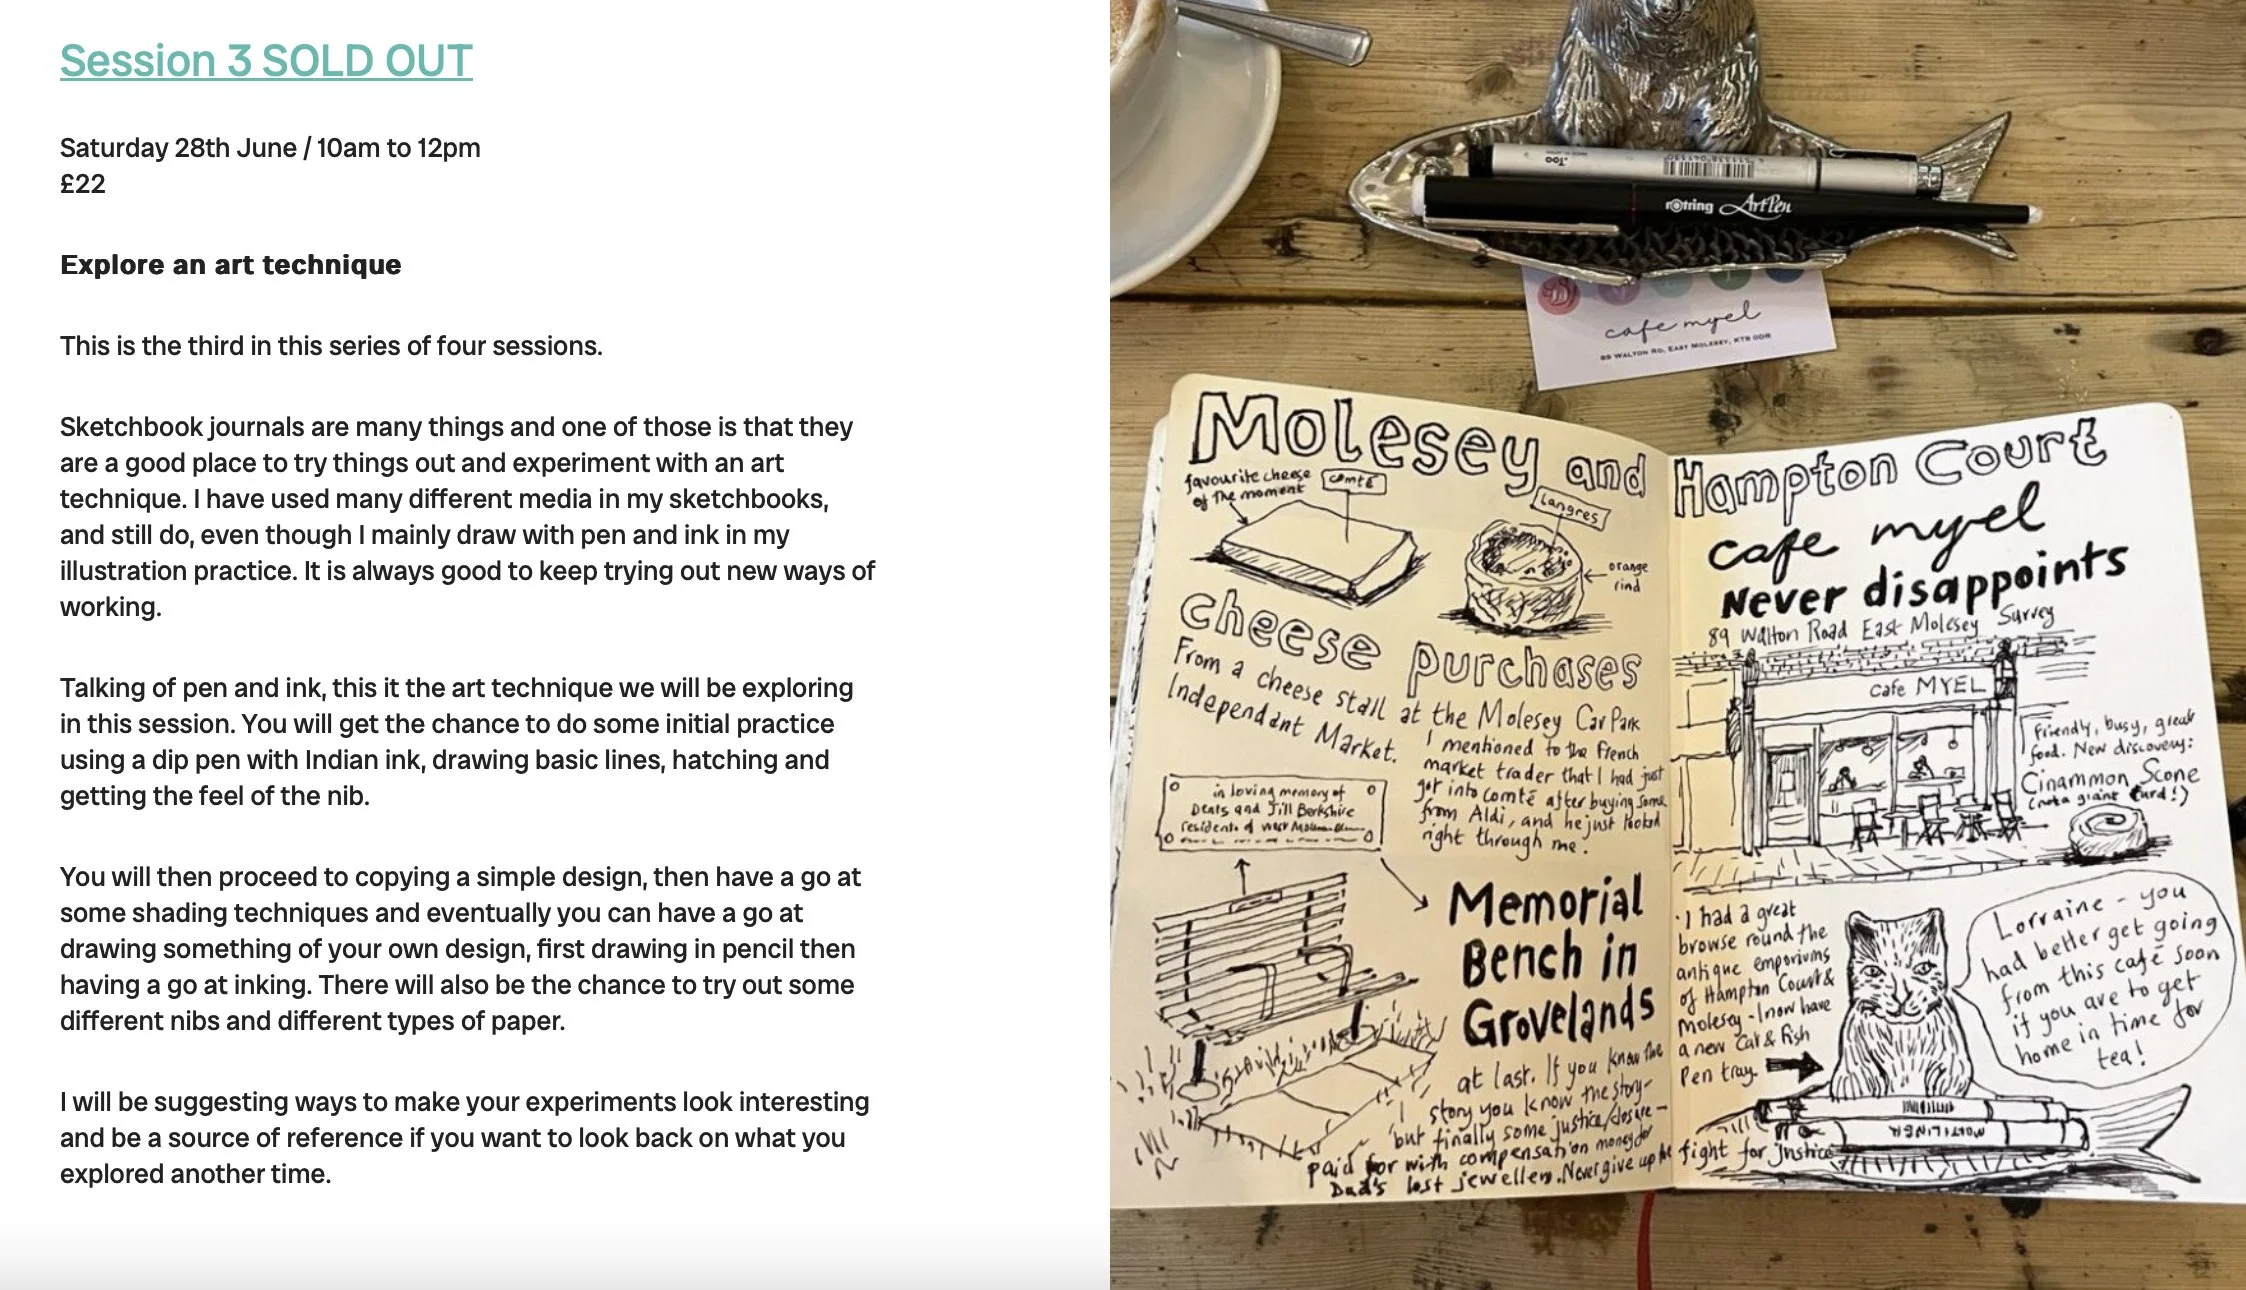 Session 3 SOLD OUT
Saturday 28th June / 10am to 12pm
£22
Explore an art technique
This is the third in this series of four sessions.
Sketchbook journals are many things and one of those is that they
are a good place to try things out and experiment with an art
technique. I have used many different media in my sketchbooks,
and still do, even though I mainly draw with pen and ink in my
illustration practice. It is always good to keep trying out new ways of
working.
Talking of pen and ink, this it the art technique we will be exploring
in this session. You will get the chance to do some initial practice
using a dip pen with Indian ink, drawing basic lines, hatching and
getting the feel of the nib.
You will then proceed to copying a simple design, then have a go at
some shading techniques and eventually you can have a go at
drawing something of your own design, first drawing in pencil then
having a go at inking. There will also be the chance to try out some
different nibs and different types of paper.
I will be suggesting ways to make your experiments look interesting
and be a source of reference if you want to look back on what you
explored another time.
.Too
rotring ArtPen
cafe myel
89 WALTON RD, EAST MOLESEY, KT8 0DR
Molesey and
favourite cheese
of the moment
comté
Langres
orange
rind
cheese purchases
From a cheese stall at the Molesey Car Park
Independant Market.
I mentioned to the French
market trader that I had just
got into Comté after buying some
from Aldi, and he just looked
right through me.
in loving memory of
Denis and Jill Berkshire
residents of West
Memorial
Bench in
Grovelands
at last. If you know the
story you know the story-
but finally some justice/closure-
paid for with compensation money for
Dad's lost jewellery. Never give up the fight for justice
Hampton Court
cafe myel
Never disappoints
89 Walton Road East Molesey Surrey
cafe MYEL
Friendly, busy, great
food. New discovery:
Cinammon Scone
(not a giant turd!)
I had a great
browse round the
antique emporiums
of Hampton Court &
Molesey - I now have
a new Cat & Fish
Pen tray.
Lorraine - you
had better get going
from this café soon
if you are to get
home in time for
tea!
MULTILINER